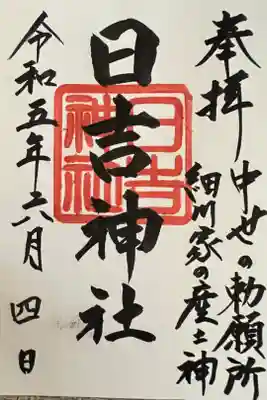 奉拝
中世の勅願所
細川家の産土神
日吉神社
日吉神社
令和五年六月四日